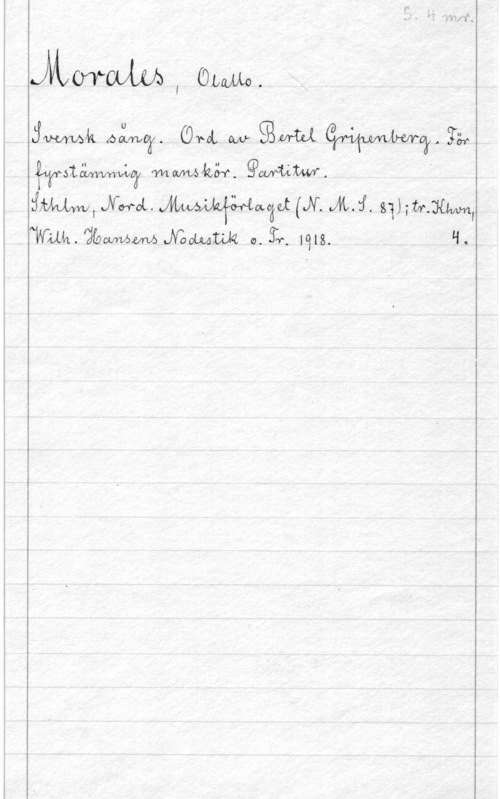 S. 4 mr.
Morales, Olallo.
Svensk sång. Ord av Bertel Gripenberg. För
fyrstämmig manskör. Partitur.
Sthlm, Nord. Musikförlaget (N. M. S. 87); tr. Khvn,
Wilh. Hansens Nodestik o. Tr. 1918. 4.